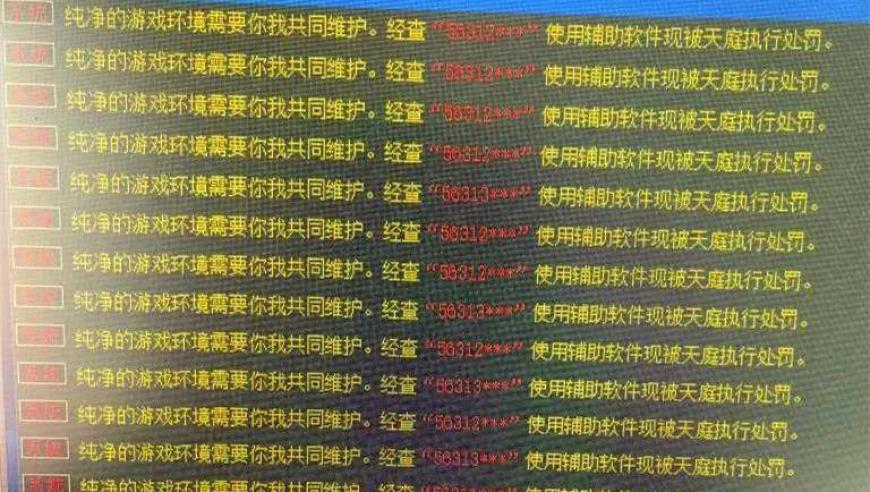 系统 纯净的游戏环境需要你我共同维护。经查“56312***”使用辅助软件现被天庭执行处罚。
系统 纯净的游戏环境需要你我共同维护。经查“56312***”使用辅助软件现被天庭执行处罚。
纯净的游戏环境需要你我共同维护。经查“56312***”使用辅助软件现被天庭执行处罚。
纯净的游戏环境需要你我共同维护。经查“56312***”使用辅助软件现被天庭执行处罚。
纯净的游戏环境需要你我共同维护。经查“56313***”使用辅助软件现被天庭执行处罚。
纯净的游戏环境需要你我共同维护。经查“56312***”使用辅助软件现被天庭执行处罚。
纯净的游戏环境需要你我共同维护。经查“56312***”使用辅助软件现被天庭执行处罚。
纯净的游戏环境需要你我共同维护。经查“56313***”使用辅助软件现被天庭执行处罚。
纯净的游戏环境需要你我共同维护。经查“56312***”使用辅助软件现被天庭执行处罚。
纯净的游戏环境需要你我共同维护。经查“56313***”使用辅助软件现被天庭执行处罚。
纯净的游戏环境需要你我共同维护。经查“56312***”使用辅助软件现被天庭执行处罚。
系统 纯净的游戏环境需要你我共同维护。经查“56313***”使用辅助软件现被天庭执行处罚。
系统 纯净的游戏环境需要你我共同维护。经查